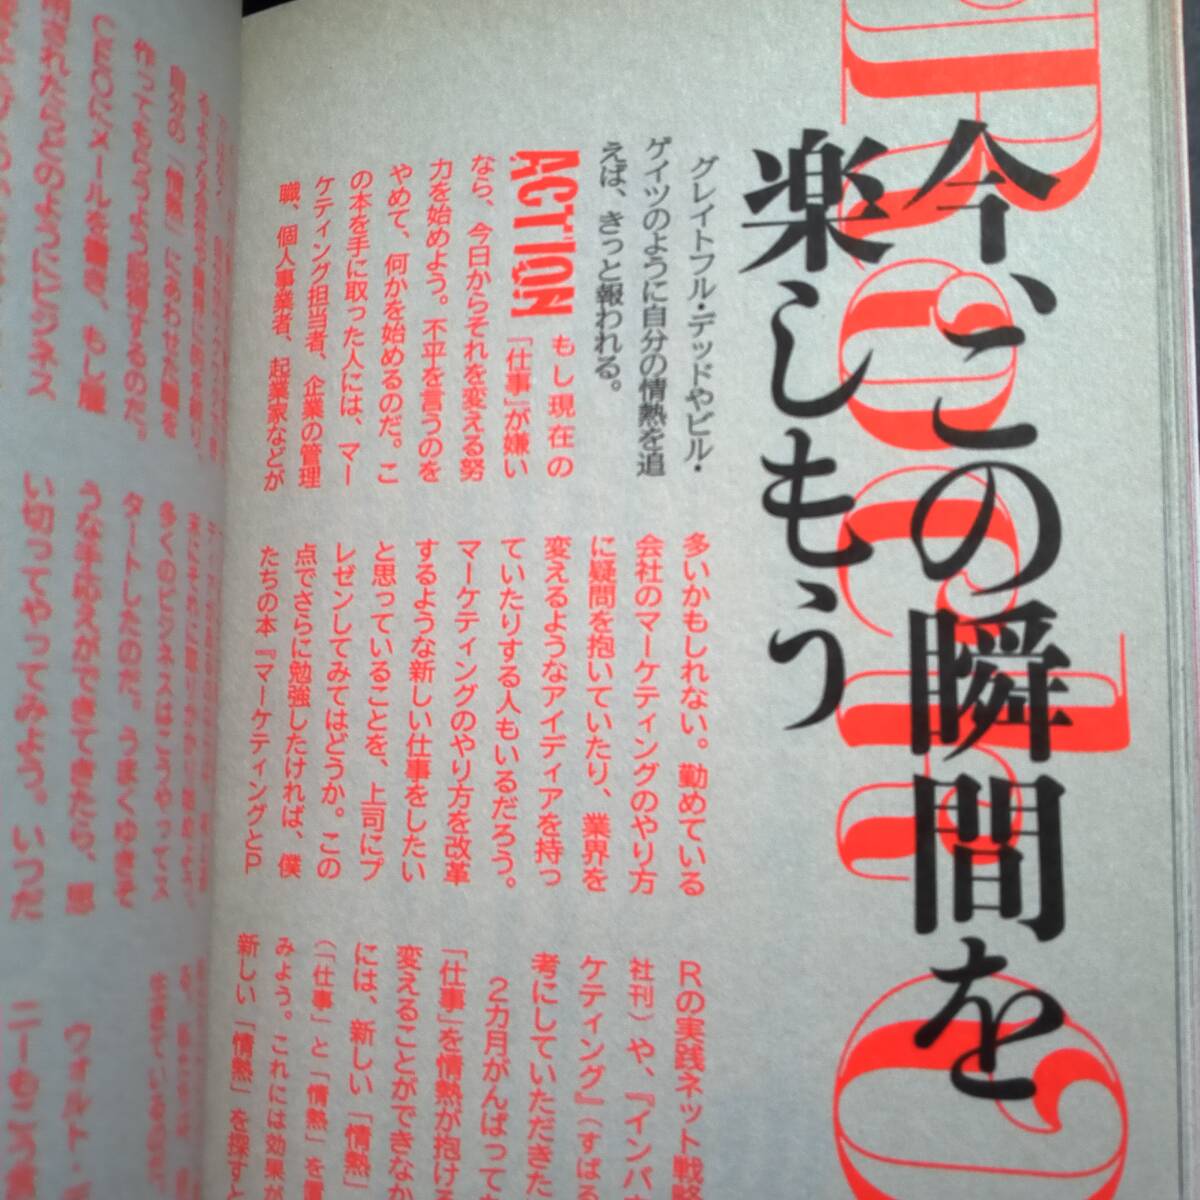 今、この瞬間を
楽しもう
グレイトフル・デッドやビル・
ゲイツのように自分の情熱を追
えば、きっと報われる。
ACTION
もし現在の
「仕事」が嫌い
なら、今日からそれを変える努
力を始めよう。不平を言うのを
やめて、何かを始めるのだ。こ
の本を手に取った人には、マー
ケティング担当者、企業の管理
職、個人事業者、起業家などが
多いかもしれない。勤めている
会社のマーケティングのやり方
に疑問を抱いていたり、業界を
変えるようなアイディアを持っ
ていたりする人もいるだろう。
マーケティングのやり方を改革
するような新しい仕事をしたい
と思っていることを、上司にプ
レゼンしてみてはどうか。この
点でさらに勉強したければ、僕
たちの本『マーケティングとP
Rの実践ネット戦略
社刊）や、『インバ
ケティング』（すばる
考にしていただきた
2カ月がんばって
「仕事」を情熱が抱ける
変えることができなか
には、新しい「情熱」
（「仕事」と「情熱」を
みよう。これには効果が
新しい「情熱」を探すと
作ってもらうよう説得するのだ。
CEOにメールを書き、もし雇
用されたらどのようにビジネス
多くのビジネスはこうやってス
タートしたのだ。うまくゆきそ
うな手応えができてきたら、思
い切ってやってみよう。いつだ
ウォルト・